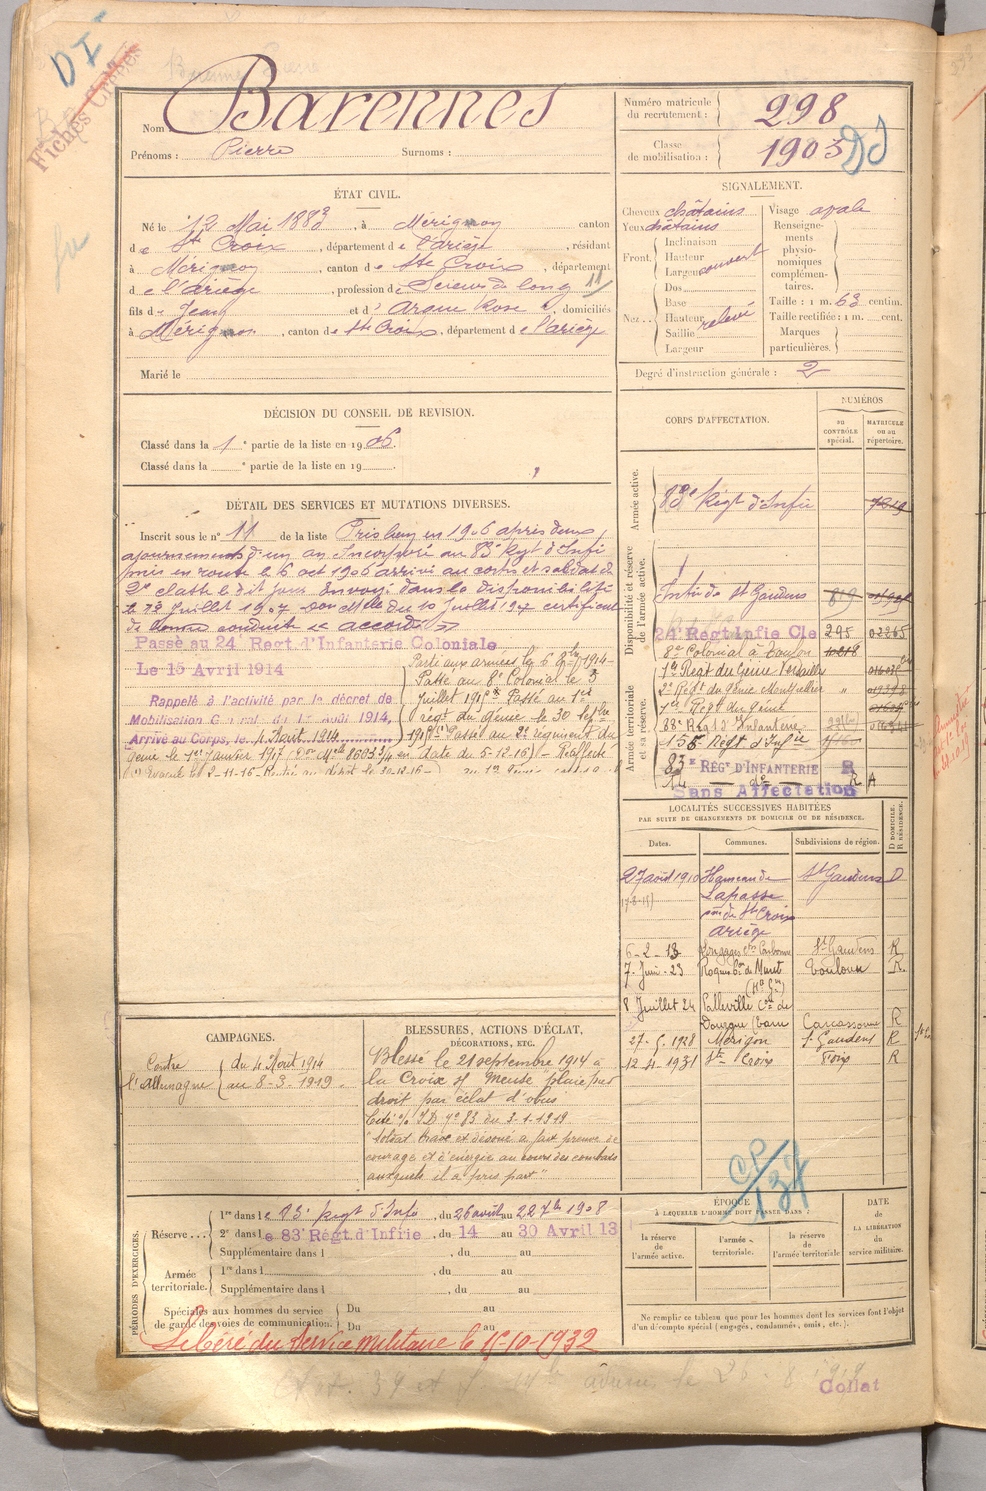 DI
Fiches Créées
Nom Barennes
Prénoms : Pierre Surnoms :
Numéro matricule du recrutement : 298
Classe de mobilisation : 1903 DJ
ÉTAT CIVIL.
Né le 12 Mai 1883, à Mérignon canton
de Ste Croix, département de l'ariège, résidant
à Mérignon, canton de Ste Croix, département
de l'ariège, profession de Scieurs de long 11
fils de Jean et d' Rose, domiciliés
à Mérignon, canton de Ste Croix, département de l'ariège
Marié le
SIGNALEMENT.
Cheveux châtains Visage ovale
Yeux châtains
Front. Inclinaison
Hauteur
Largeur couvert
Nez.. Dos
Base
Hauteur relevé
Saillie
Largeur
Renseignements physionomiques complémentaires.
Taille : 1 m. 63 centim.
Taille rectifiée : 1 m. cent.
Marques particulières.
Degré d'instruction générale : 2
DÉCISION DU CONSEIL DE REVISION.
Classé dans la 1e partie de la liste en 1906.
Classé dans la e partie de la liste en 19
DÉTAIL DES SERVICES ET MUTATIONS DIVERSES.
Inscrit sous le n° 11 de la liste en 1906 après deux
ajournements d'un an Incorporé au 83e Regt d'Infie
mis en route le 6 oct 1906 arrivé au corps et soldat de
2e classe le dit jour Envoyé dans la disponibilité
le 12 Juillet 1907 du 10 Juillet 1907 certificat
de bonne conduite accordé
Passé au 24e Regt. d'Infanterie Coloniale
Le 15 Avril 1914
Rappelé à l'activité par le décret de
Mobilisation Général du 1er août 1914,
Arrivé au Corps, le 4 Août 1914
Parti aux armées le 6 7bre 1914-
Passé au 8e Colonial le 3
Juillet 191 Passé au 1er
reg. du génie le 30 Septbre
191 Passé au 2e régiment du
Génie le 1er Janvier 1917 en date du 5-12-16) - Réaffecté
Evacué le 2-11-16- Rentré au dépôt le 30-12-16-
CORPS D'AFFECTATION.
NUMÉROS
au CONTRÔLE spécial.
MATRICULE ou au répertoire.
Armée active.
83e Regt d'Infie
Disponibilité et réserve de l'armée active.
Infie de St Gaudens 819
24e Regt Infie Cle 295 02265
8e Colonial à Toulon
1er Regt du Génie Versailles
2e Regt du génie Montpellier "
Armée territoriale et sa réserve.
1er Regt du Génie
88e Regt d'Infanterie
135e Regt d'Infie
83e RÉGt D'INFANTERIE
R A
Sans Affectation
LOCALITÉS SUCCESSIVES HABITÉES
PAR SUITE DE CHANGEMENTS DE DOMICILE OU DE RÉSIDENCE.
Dates. Communes. Subdivisions de région. D DOMICILE. R RÉSIDENCE.
27 août 1910 Hameau de St Gaudens D
Lapasse
con de Ste Croix
Ariège
6-2-13 Carbonne St Gaudens R
7-Juin-23 Roques con de Muret Toulouse R.
(Hte Gne)
8 Juillet 24 Palleville con de
Dourgne (Tarn Carcassonne R
27-5-1928 Mérigon St Gaudens R
12-4-1931 Ste Croix Foix R
CAMPAGNES.
Contre l'Allemagne du 4 Août 1914
au 8-3-1919.
BLESSURES, ACTIONS D'ÉCLAT,
DÉCORATIONS, ETC.
Blessé le 21 septembre 1914 à
la Croix sf Meuse plaie pied
droit par éclat d'obus
Cité o/ ID n° 83 du 3-1-1919
"Soldat brave et dévoué a fait preuve de
courage et d'énergie au cours des combats
auxquels il a pris part"
CP/137
PÉRIODES D'EXERCICES.
Réserve... 1re dans le 83e Regt d'Infie, du 26 août au 22 7bre 1908
2e dans le 83e Régt. d'Infrie, du 14 au 30 Avril 13
Supplémentaire dans l , du au
Armée territoriale. 1re dans l , du au
Supplémentaire dans l , du au
Spéciales aux hommes du service de garde des voies de communication. Du au
Du au
ÉPOQUE
À LAQUELLE L'HOMME DOIT PASSER DANS :
la réserve de l'armée active.
l'armée territoriale.
la réserve de l'armée territoriale
DATE de LA LIBÉRATION du service militaire.
Ne remplir ce tableau que pour les hommes dont les services font l'objet
d'un décompte spécial (engagés, condamnés, omis, etc.).
Libéré du Service militaire le 15-10-1932
Collat